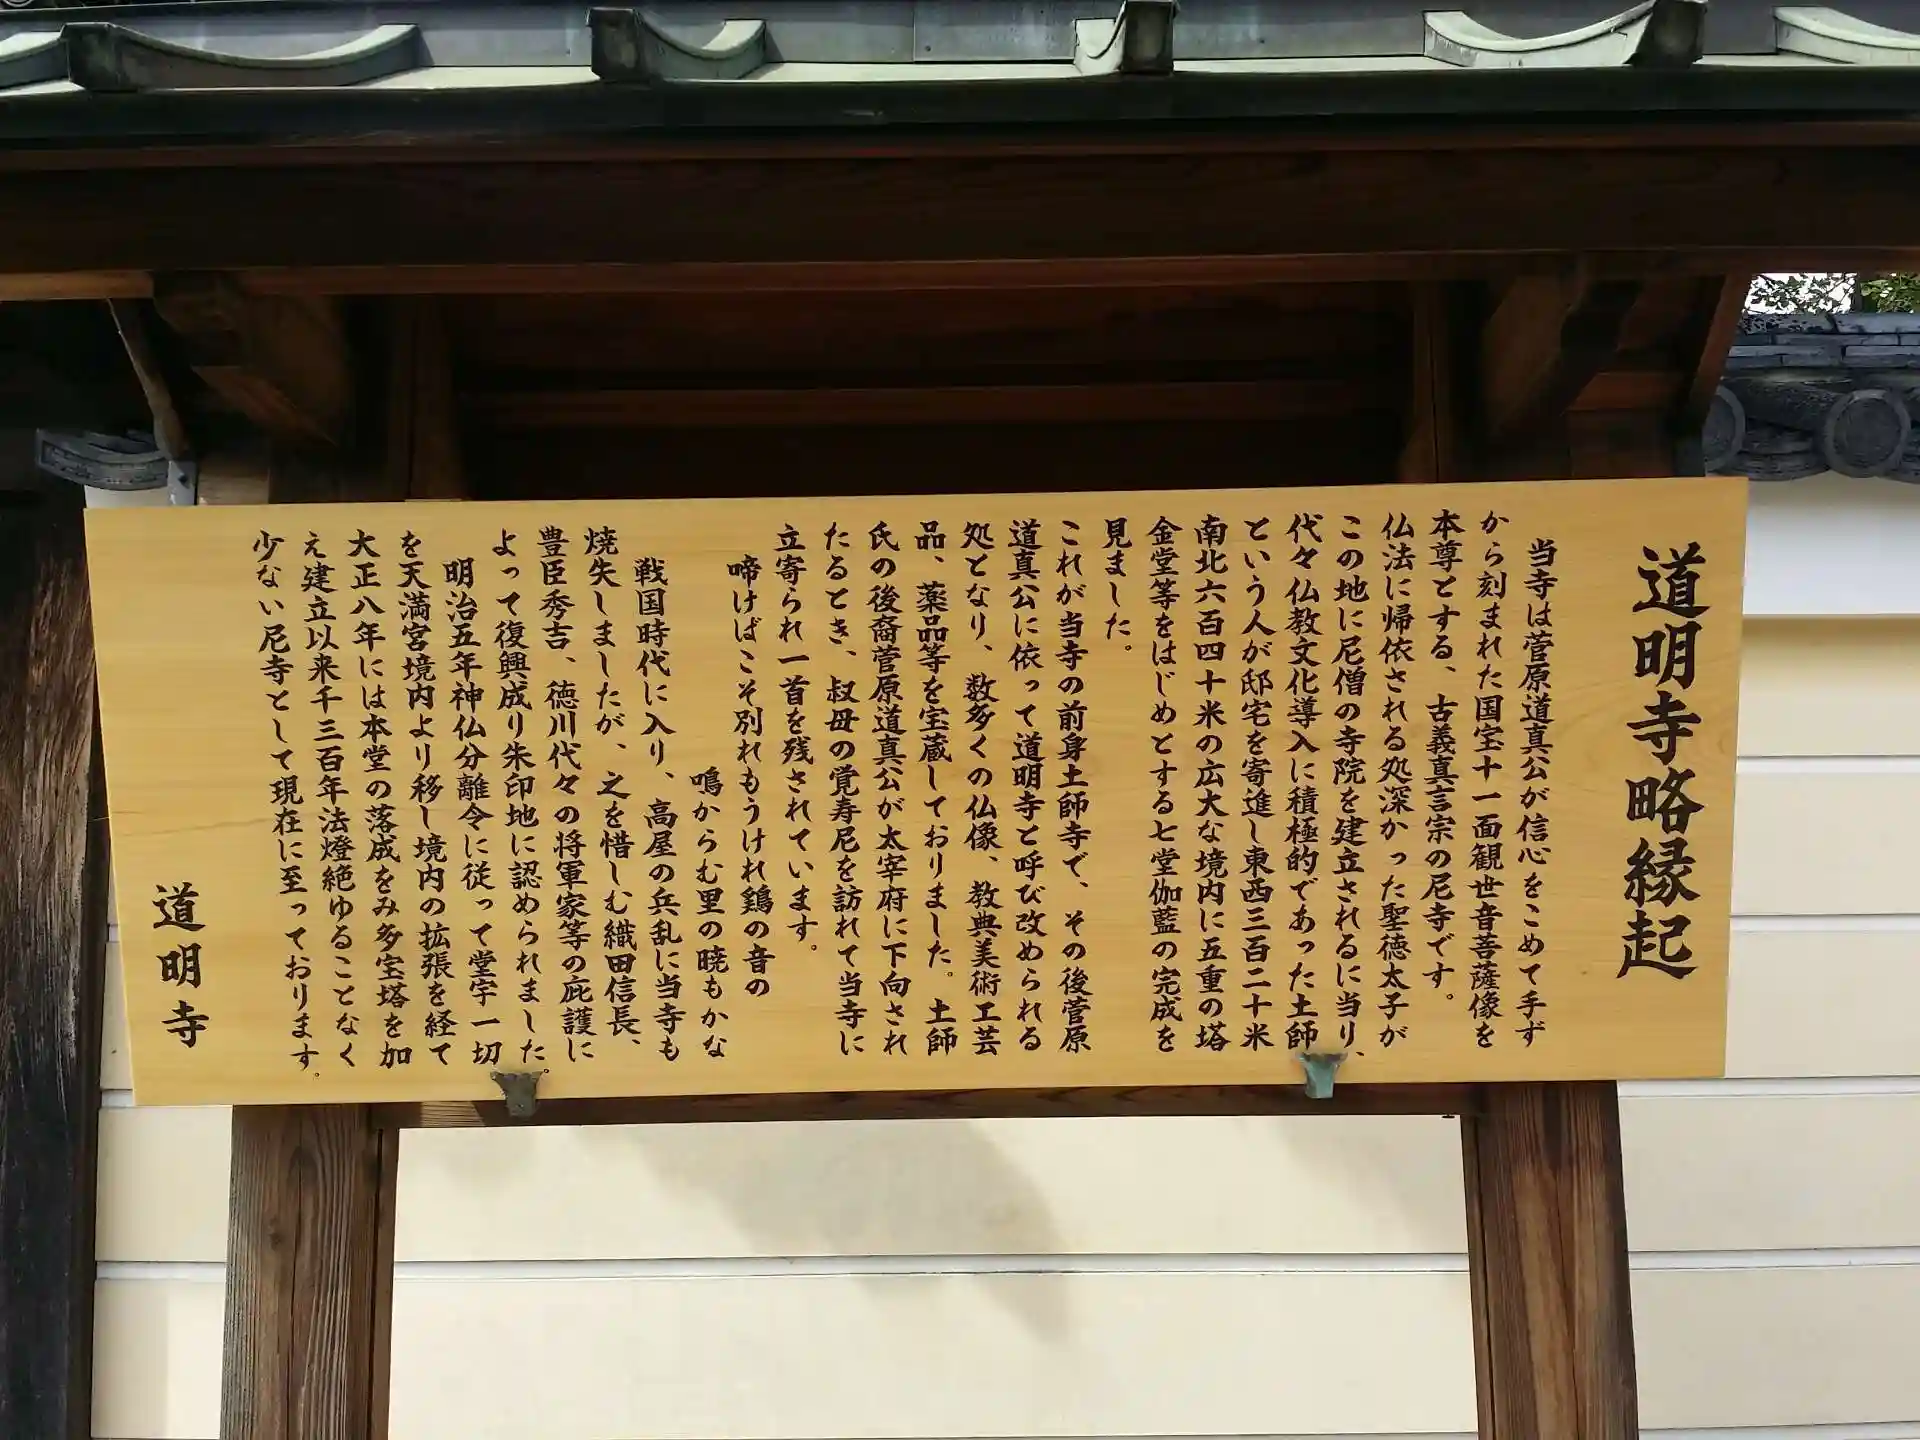 道明寺略縁起
当寺は菅原道真公が信心をこめて手ず
から刻まれた国宝十一面観世音菩薩像を
本尊とする、古義真言宗の尼寺です。
仏法に帰依される処深かった聖徳太子が
この地に尼僧の寺院を建立されるに当り、
代々仏教文化導入に積極的であった土師
という人が邸宅を寄進し東西三百二十米
南北六百四十米の広大な境内に五重の塔
金堂等をはじめとする七堂伽藍の完成を
見ました。
これが当寺の前身土師寺で、その後菅原
道真公に依って道明寺と呼び改められる
処となり、数多くの仏像、教典美術工芸
品、薬品等を宝蔵しておりました。土師
氏の後裔菅原道真公が太宰府に下向され
たるとき、叔母の覚寿尼を訪れて当寺に
立寄られ一首を残されています。
啼けばこそ別れもうけれ鶏の音の
鳴からむ里の暁もかな
戦国時代に入り、高屋の兵乱に当寺も
焼失しましたが、之を惜しむ織田信長、
豊臣秀吉、徳川代々の将軍家等の庇護に
よって復興成り朱印地に認められました。
明治五年神仏分離令に従って堂宇一切
を天満宮境内より移し境内の拡張を経て
大正八年には本堂の落成をみ多宝塔を加
え建立以来千三百年法燈絶ゆることなく
少ない尼寺として現在に至っております。
道明寺